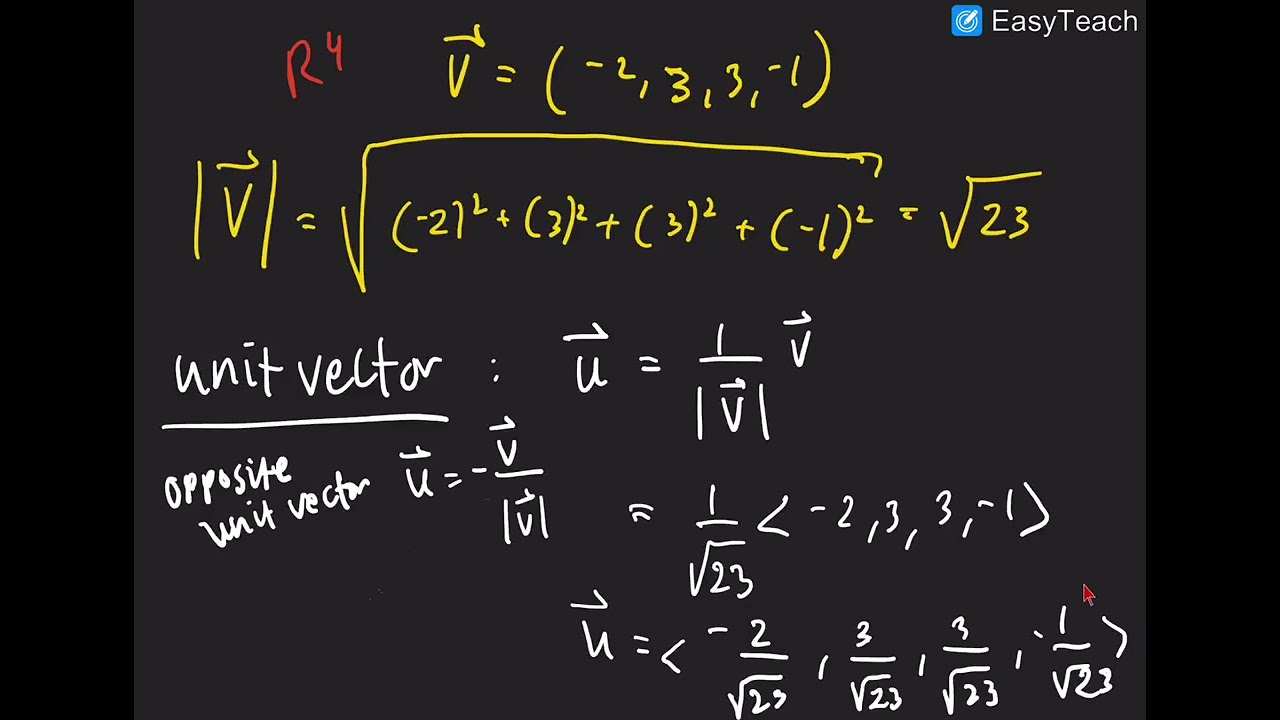 EasyTeach
R⁴ v⃗ = (-2, 3, 3, -1)
|v⃗| = √((-2)² + (3)² + (3)² + (-1)²) = √23
unit vector : u⃗ = 1/|v⃗| v⃗
opposite unit vector u⃗ = - v⃗/|v⃗|
= 1/√23 < -2, 3, 3, -1 >
u⃗ = < -2/√23 , 3/√23 , 3/√23 , -1/√23 >